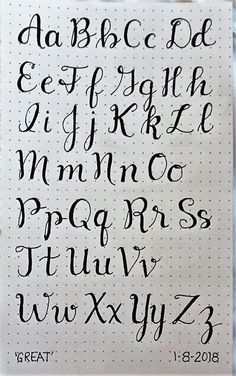 Aa Bb Cc Dd
Ee Ff Gg Hh
Ii Jj Kk Ll
Mm Nn Oo
Pp Qq Rr Ss
Tt Uu Vv
Ww Xx Yy Zz
'GREAT' 1-8-2018